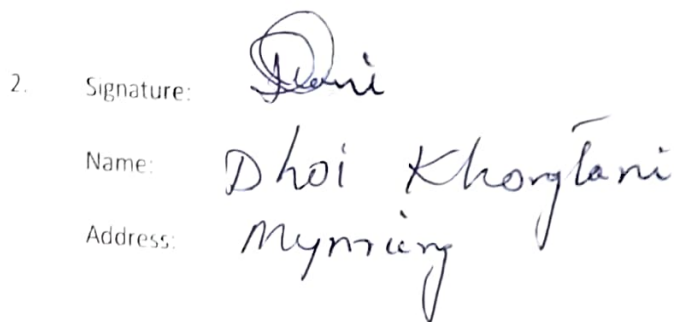 2. Signature:
Name: Dhoi Khongtani
Address: Mynriang